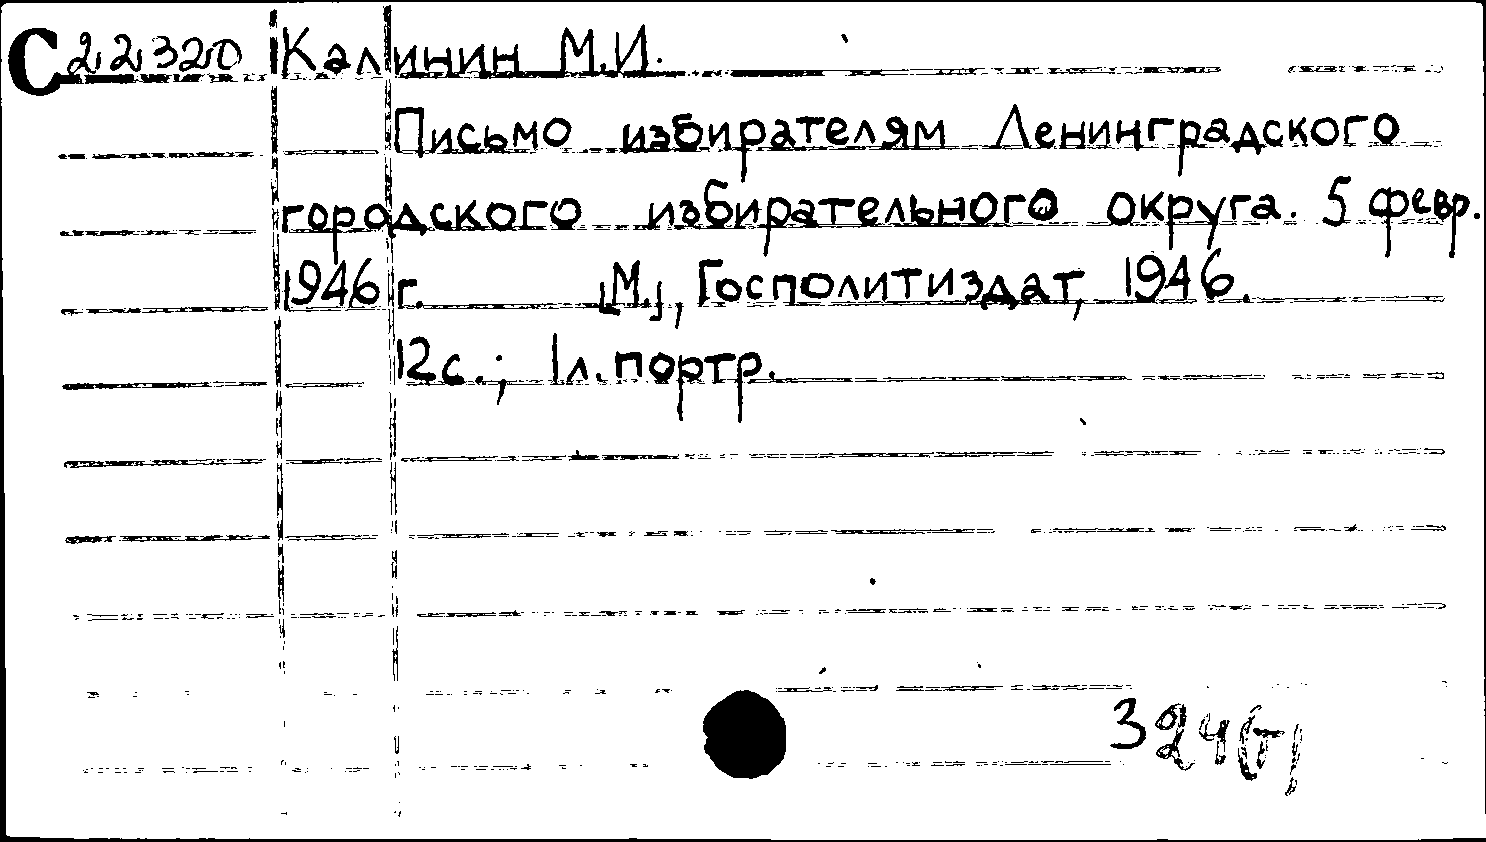 С 22320 Калинин М.И.
Письмо избирателям Ленинградского
городского избирательного округа. 5 февр.
1946 г. [М.], Госполитиздат, 1946.
12 с.; 1 л. портр.